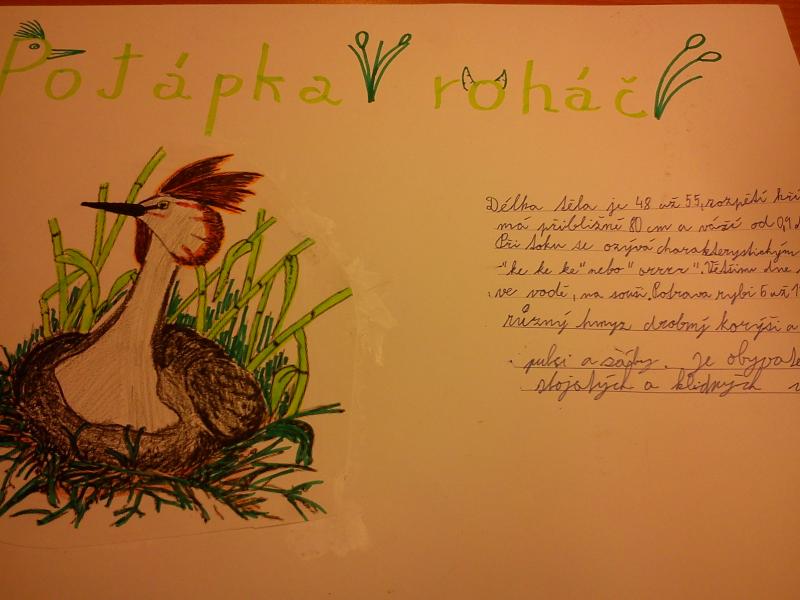 Potápka roháč
Délka těla je 48 až 55, rozpětí kří
má přibližně 80 cm a váží od 0,9
Při toku se ozývá charakterystichým
"ke ke ke" nebo " orrrr". Většinu dne
ve vodě, na souši. Potrava rybi 6 až 1
různý hmyz drobný korýši a
pulci a žáby. Je obyvate
stojatých a klidných v